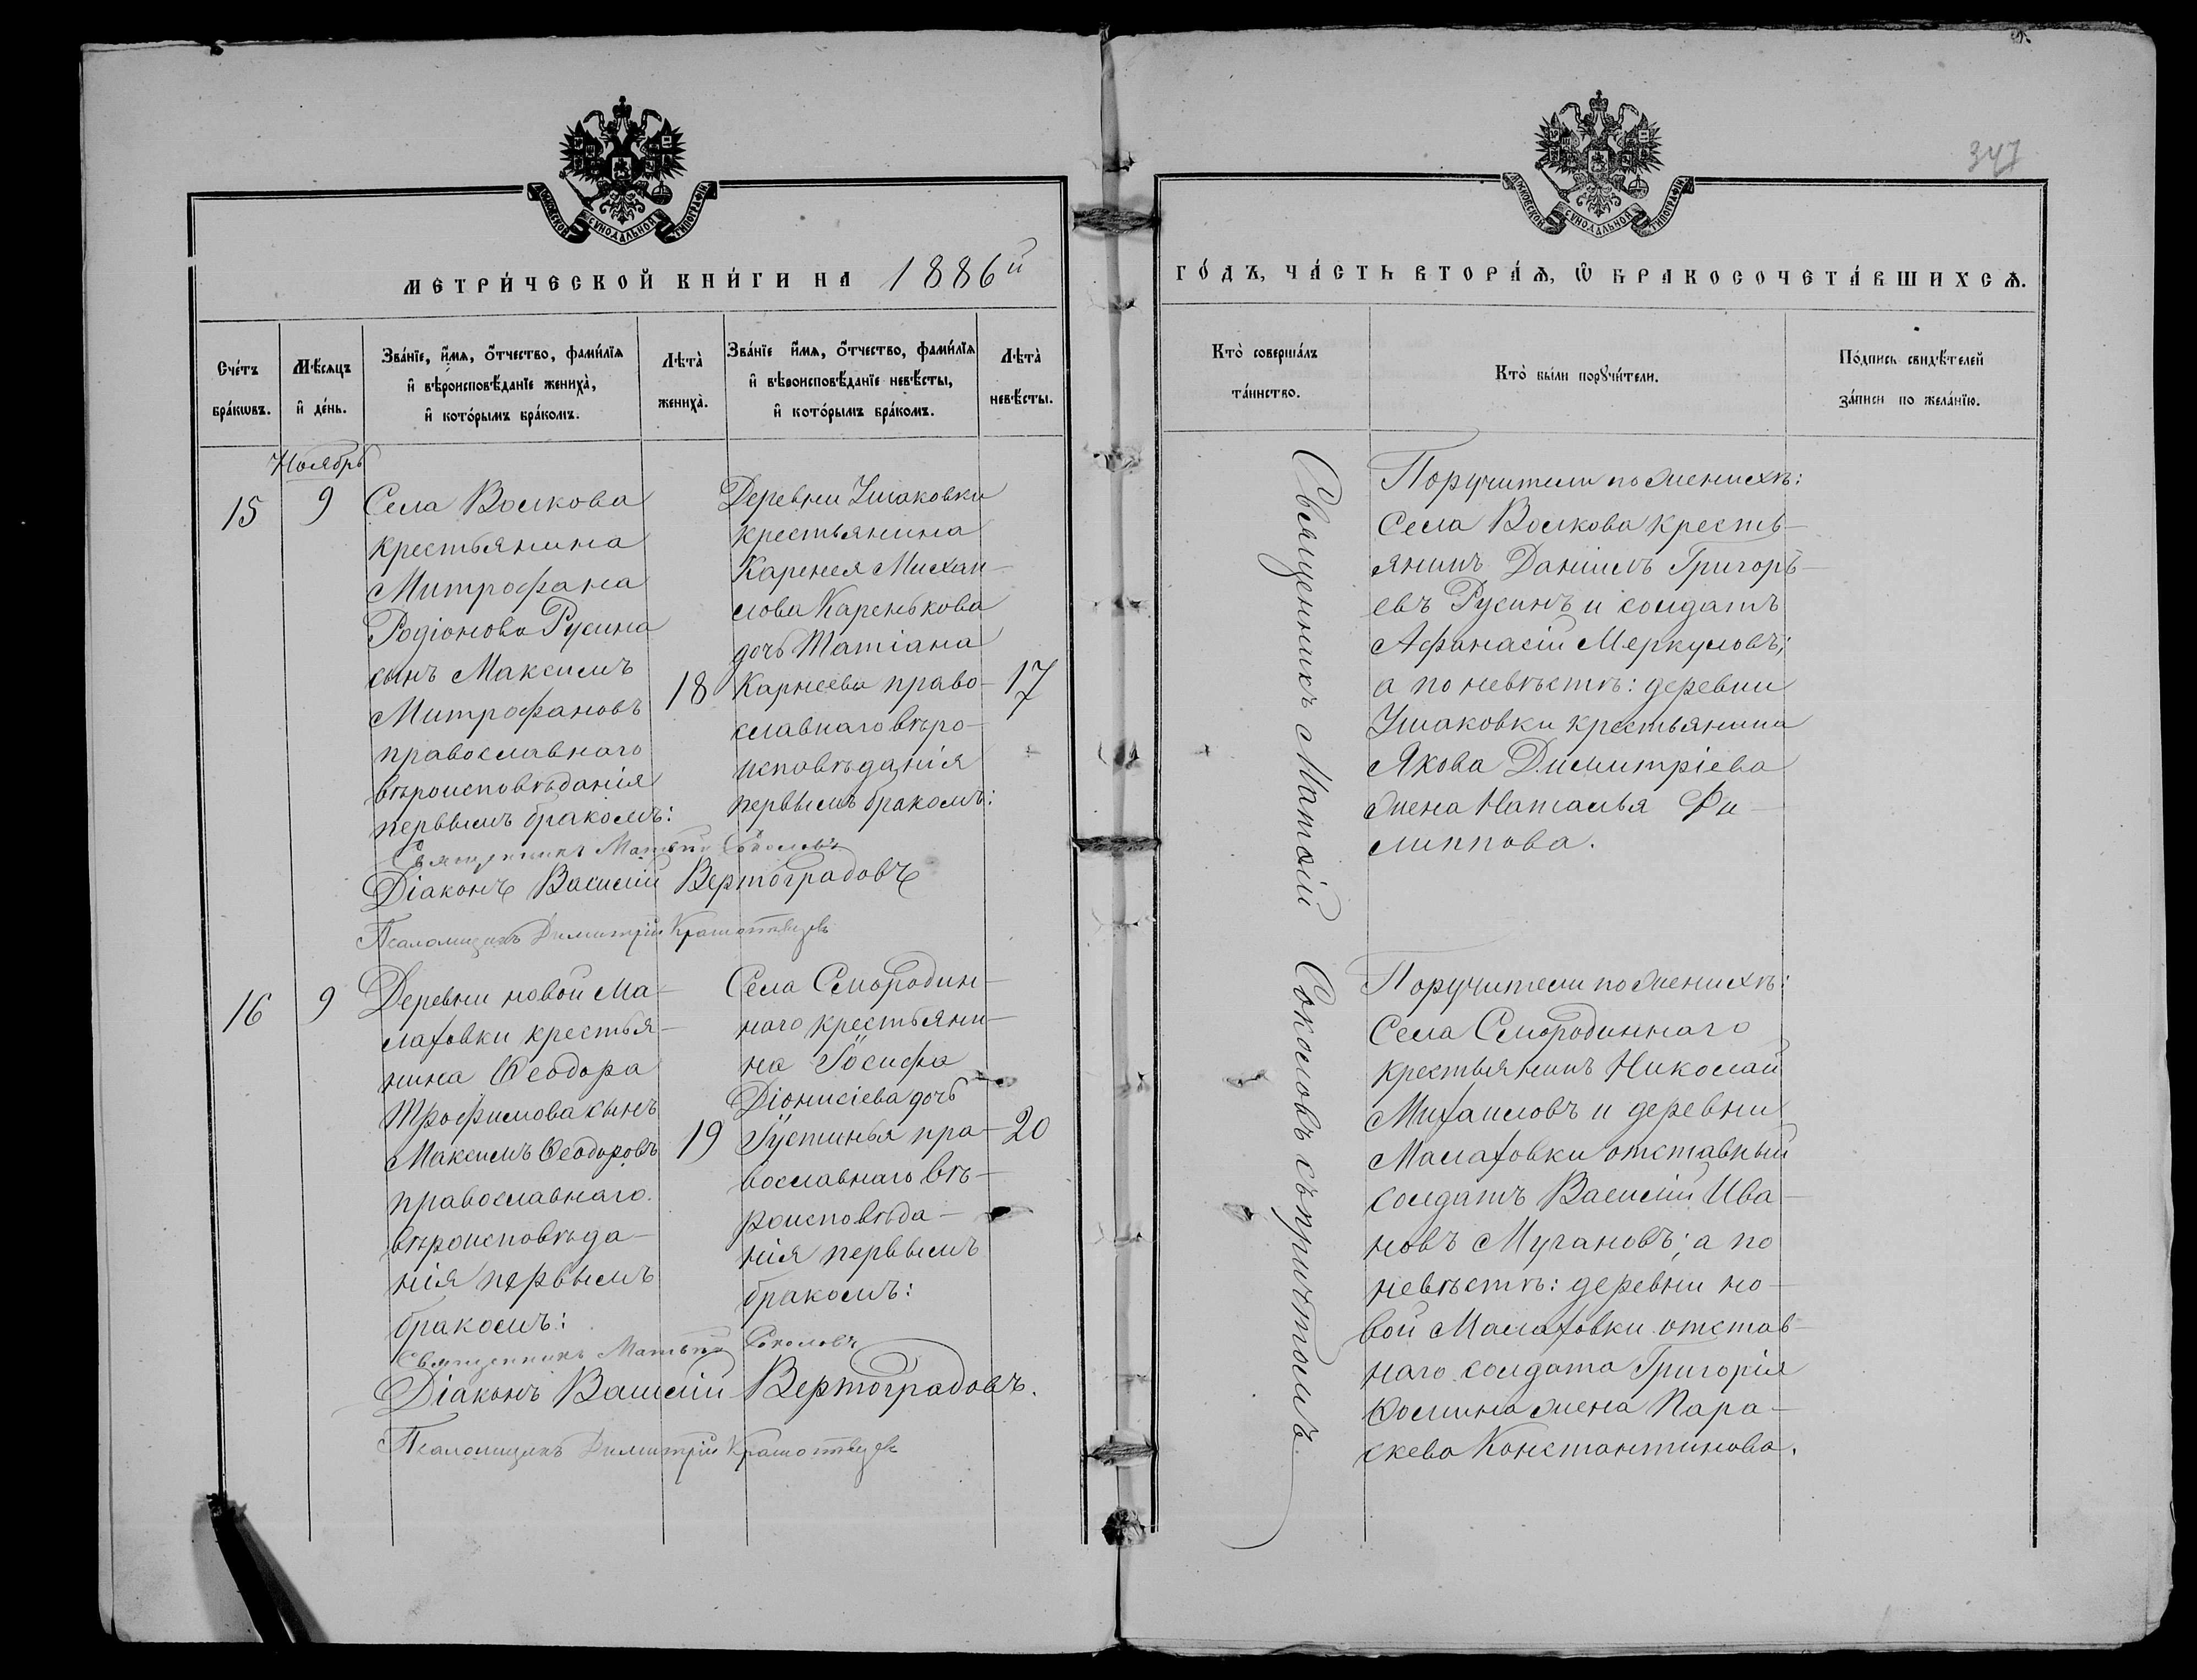 347
МОСКОВСКОЙ СѴНОДАЛЬНОЙ ТИПОГРАФІИ
МЕТРИ́ЧЕСКОЙ КНИ́ГИ НА 1886й
Сче́тъ бра́кѡвъ.
Мѣ́сяцъ и҆ де́нь.
Зва́нїе, и҆́мѧ, ѻ҆́тчество, фами́лїѧ
и҆ вѣроисповѣ́данїе жениха̀,
и҆ кото́рымъ бра́комъ.
Лѣта̀ жениха̀.
Зва́нїе и҆́мѧ, ѻ҆́тчество, фами́лїѧ
и҆ вѣроисповѣ́данїе невѣ́сты,
и҆ кото́рымъ бра́комъ.
Лѣта̀ невѣ́сты.
Ноябрь
15
9
Села Волкова
крестьянина
Митрофана
Родіонова Русина
сынъ Максимъ
Митрофановъ
православнаго
вѣроисповѣданія
первымъ бракомъ:
18
Деревни Ушаковки
крестьянина
Карнея Михаи-
лова Каренькова
дочь Татіана
Карнеева право-
славнаго вѣро-
исповѣданія
первымъ бракомъ:
17
Священникъ Матѳій Соколовъ
Діаконъ Василій Вертоградовъ
Псаломщикъ Димитрій
16
9
Деревни новой Ма-
лаховки крестья-
нина Ѳеодора
Трофимова сынъ
Максимъ Ѳеодоровъ
православнаго
вѣроисповѣда-
нія первымъ
бракомъ:
19
Села Смородин-
наго крестьяни-
на Іосифа
Діонисіева дочь
Іустинья пра-
вославнаго вѣ-
роисповѣда-
нія первымъ
бракомъ:
20
Священникъ Матѳій Соколовъ
Діаконъ Василій Вертоградовъ.
Псаломщикъ Димитрій
МОСКОВСКОЙ СѴНОДАЛЬНОЙ ТИПОГРАФІИ
ГО́ДЪ, ЧА́СТЬ ВТОРА́Ѧ, Ѡ҆ БРАКОСОЧЕТА́ВШИХСѦ.
Кто̀ соверша́лъ
та́инство.
Кто̀ бы́ли порꙋчи́тели.
По́дпись свидѣ́телей
за́писи по жела́нїю.
Священникъ Матѳій Соколовъ съ причтомъ.
Поручители по женихѣ:
Села Волкова кресть-
янинъ Даніилъ Григорь-
евъ Русинъ и солдатъ
Афанасій Меркуловъ;
а по невѣстѣ: деревни
Ушаковки крестьянина
Якова Димитріева
жена Наталья Фи-
липпова.
Поручители по женихѣ:
Села Смородиннаго
крестьянинъ Николай
Михаиловъ и деревни
Малаховки отставный
солдатъ Василій Ива-
новъ Мугановъ; а по
невѣстѣ: деревни но-
вой Малаховки отстав-
наго солдата Григорія
жена Пара-
скева Константинова.